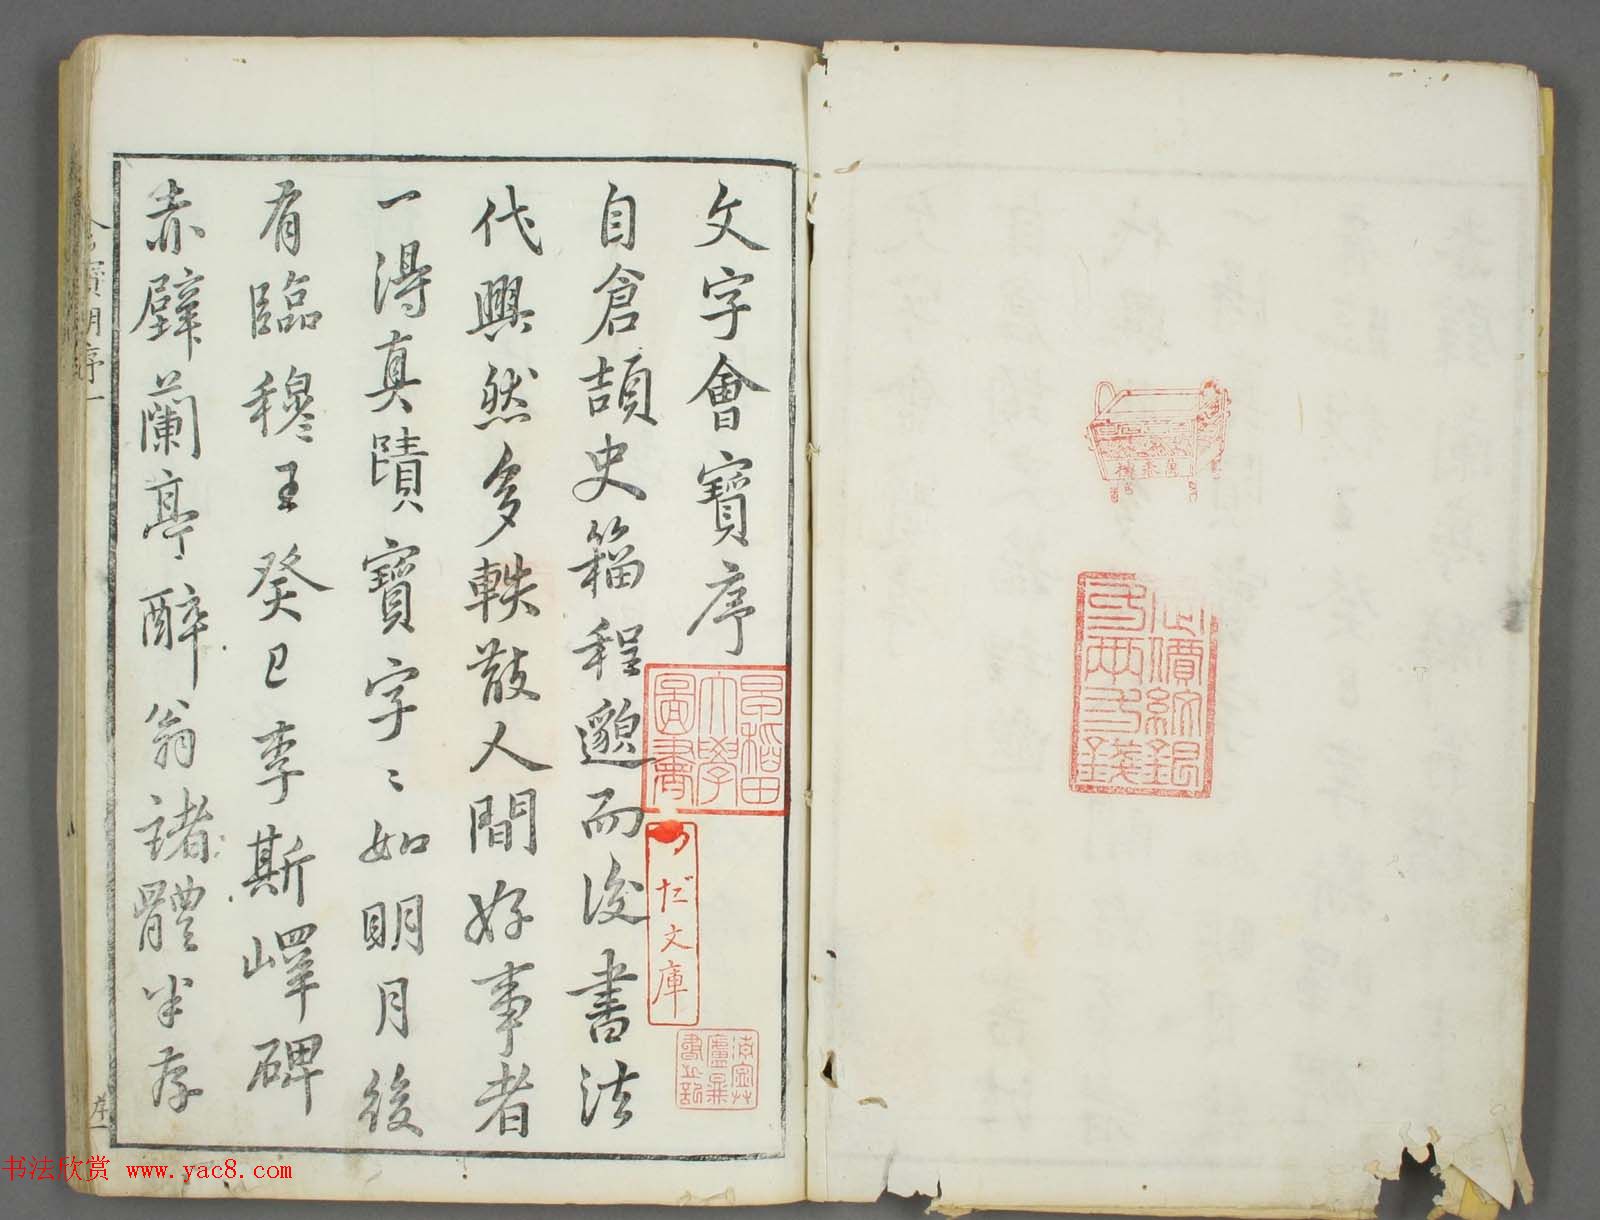 文字會寶序
自倉頡史籀程邈而後書法
代興然多軼散人間好事者
一得真蹟寶字〻如明月後
有臨穆王癸巳李斯嶧碑
赤壁蘭亭醉翁諸體半存
早稻田大學圖書
わだ文庫
定價紋銀
書法欣赏 www.yac8.com